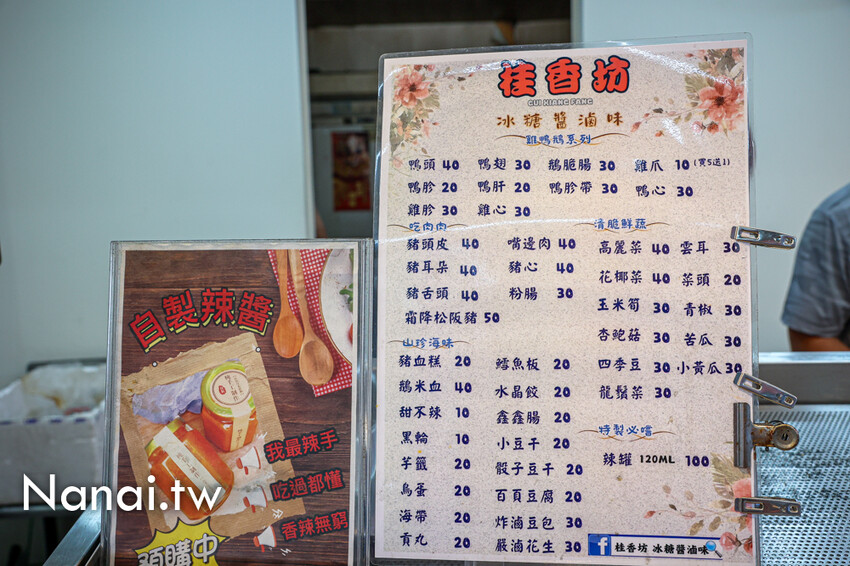 桂香坊
GUI XIANG FANG
冰糖醬滷味
雞鴨鵝系列
鴨頭 40 鴨翅 30 鵝脆腸 30 雞爪 10 (買5送1)
鴨胗 20 鴨肝 20 鴨胗帶 30 鴨心 30
雞胗 30 雞心 30
吃肉肉
豬頭皮 40 嘴邊肉 40
豬耳朵 40 豬心 40
豬舌頭 40 粉腸 30
霜降松阪豬 50
清脆鮮蔬
高麗菜 40 雲耳 30
花椰菜 40 菜頭 20
玉米筍 30 青椒 30
杏鮑菇 30 苦瓜 30
四季豆 30 小黃瓜 30
龍鬚菜 30
山珍海味
豬血糕 20 鱈魚板 20
鵝米血 40 水晶餃 20
甜不辣 10 鑫鑫腸 20
黑輪 10 小豆干 20
芋籤 20 骰子豆干 20
鳥蛋 20 百頁豆腐 20
海帶 20 炸滷豆包 30
貢丸 20 嚴滷花生 30
特製必嚐
辣罐 120ML 100
f 桂香坊 冰糖醬滷味
自製辣醬
我最辣手
吃過都懂
香辣無窮
預購中
Nanai.tw